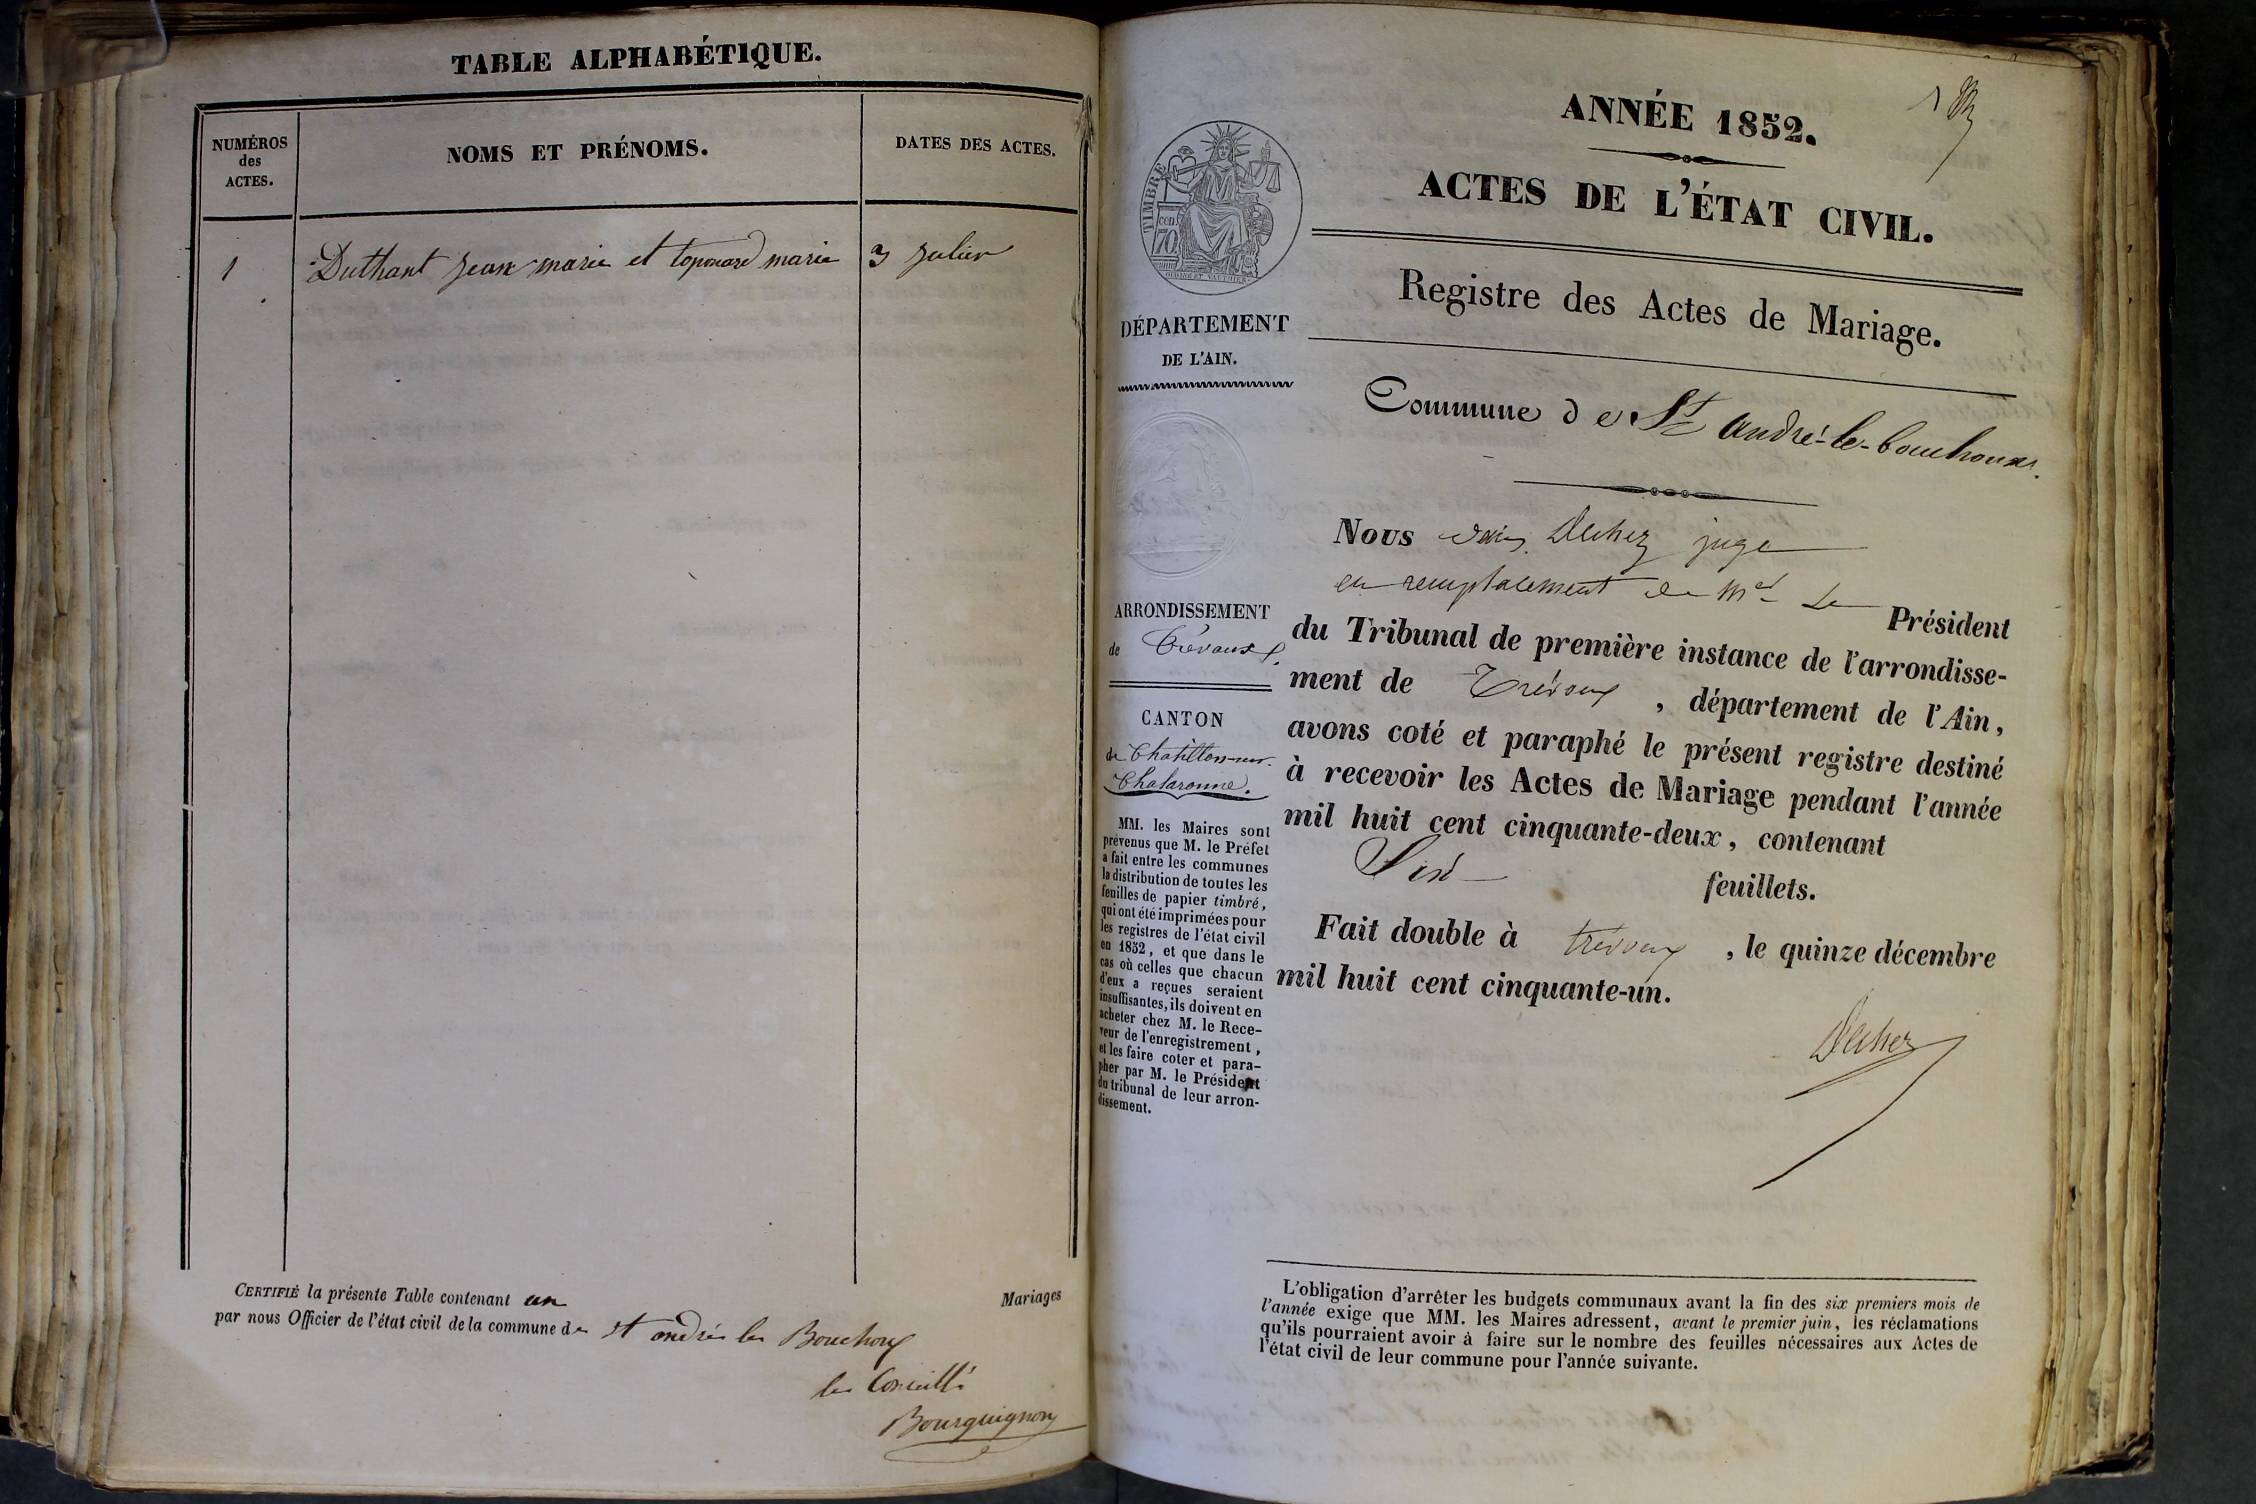 TABLE ALPHABÉTIQUE.
NUMÉROS
des
ACTES.
NOMS ET PRÉNOMS.
DATES DES ACTES.
1 Duthant Jean marie et toponard marie 3 Julier
CERTIFIÉ la présente Table contenant un Mariages
par nous Officier de l'état civil de la commune de st andré le Bouchoux
le Conseillé
Bourguignon
1
ANNÉE 1852.
ACTES DE L'ÉTAT CIVIL.
TIMBRE
70
cen
DÉPARTEMENT
DE L'AIN.
Registre des Actes de Mariage.
Commune de St andré-le-bouchoux.
ARRONDISSEMENT
de Trévoux.
CANTON
de Chatillon-sur-
Chalaronne.
MM. les Maires sont
prévenus que M. le Préfet
a fait entre les communes
la distribution de toutes les
feuilles de papier timbré,
qui ont été imprimées pour
les registres de l'état civil
en 1852, et que dans le
cas où celles que chacun
d'eux a reçues seraient
insuffisantes, ils doivent en
acheter chez M. le Rece-
veur de l'enregistrement,
et les faire coter et para-
pher par M. le Président
du tribunal de leur arron-
dissement.
Nous juge
en remplacement de Mr Le Président
du Tribunal de première instance de l'arrondisse-
ment de Trévoux, département de l'Ain,
avons coté et paraphé le présent registre destiné
à recevoir les Actes de Mariage pendant l'année
mil huit cent cinquante-deux, contenant
Six feuillets.
Fait double à trévoux, le quinze décembre
mil huit cent cinquante-un.
L'obligation d'arrêter les budgets communaux avant la fin des six premiers mois de
l'année exige que MM. les Maires adressent, avant le premier juin, les réclamations
qu'ils pourraient avoir à faire sur le nombre des feuilles nécessaires aux Actes de
l'état civil de leur commune pour l'année suivante.